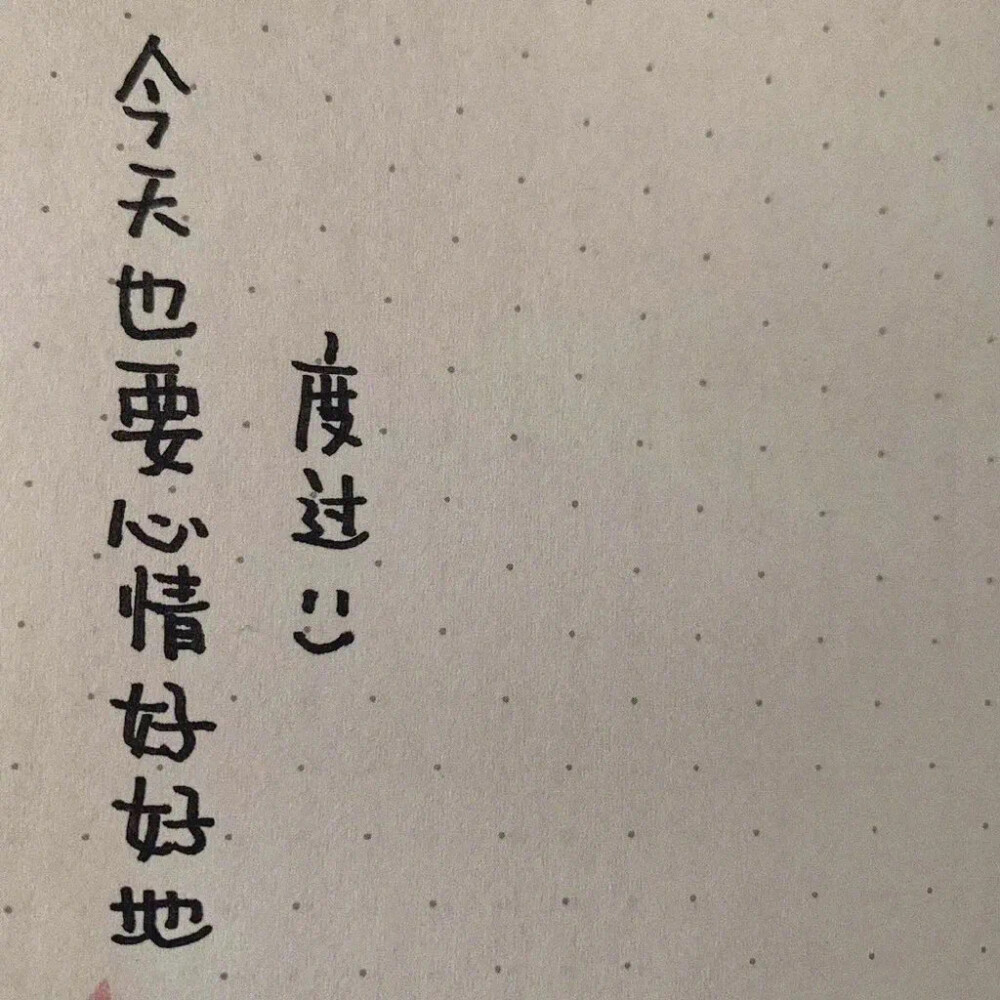 今天也要心情好好地
度过 :)